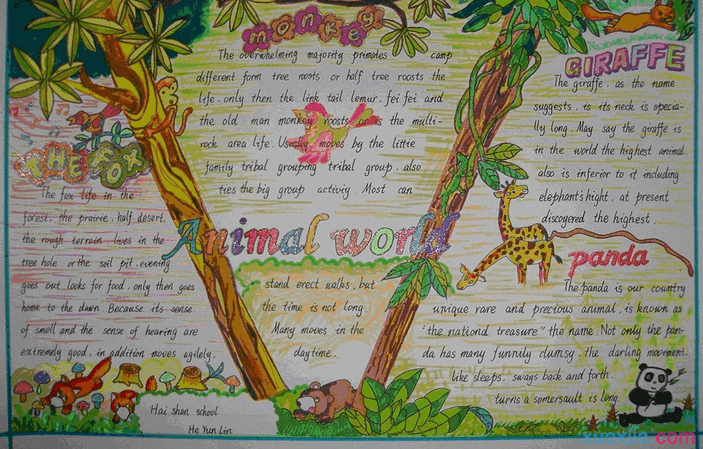 monkey
The overwhelming majority primates camp
different form tree roosts or half tree roosts the
life. only then the link tail lemur. fei fei and
the old man monkey roosts is the multi-
rock area life. Usually moves by the little
family tribal grouping tribal group. also
ties the big group activiy. Most can
THE FOX
The fox life in the
forest. the prairie. half desert.
the rough terrain. lives in the
tree hole or the soil pit. evening
goes out looks for food. only then goes
home to the dawn Because its sense
of smell and the sense of hearing are
extremely good. in addition moves agilely.
Animal world
stand erect walks. but
the time is not long.
Many moves in the
daytime.
Hai shan school
He Yun Lin
GIRAFFE
The giraffe. as the name
suggests. is its neck is specia-
lly long. May say the giraffe is
in the world the highest animal.
also is inferior to it including
elephant's hight. at present
discoyered the highest.
panda
The panda is our country
unique rare and precious animal. is known as
"the nationd treasure" the name. Not only the pan-
da has many funnily clumsy. the darling movement.
like sleeps. sways back and forth.
turns a somersault is long.
xuexila.com